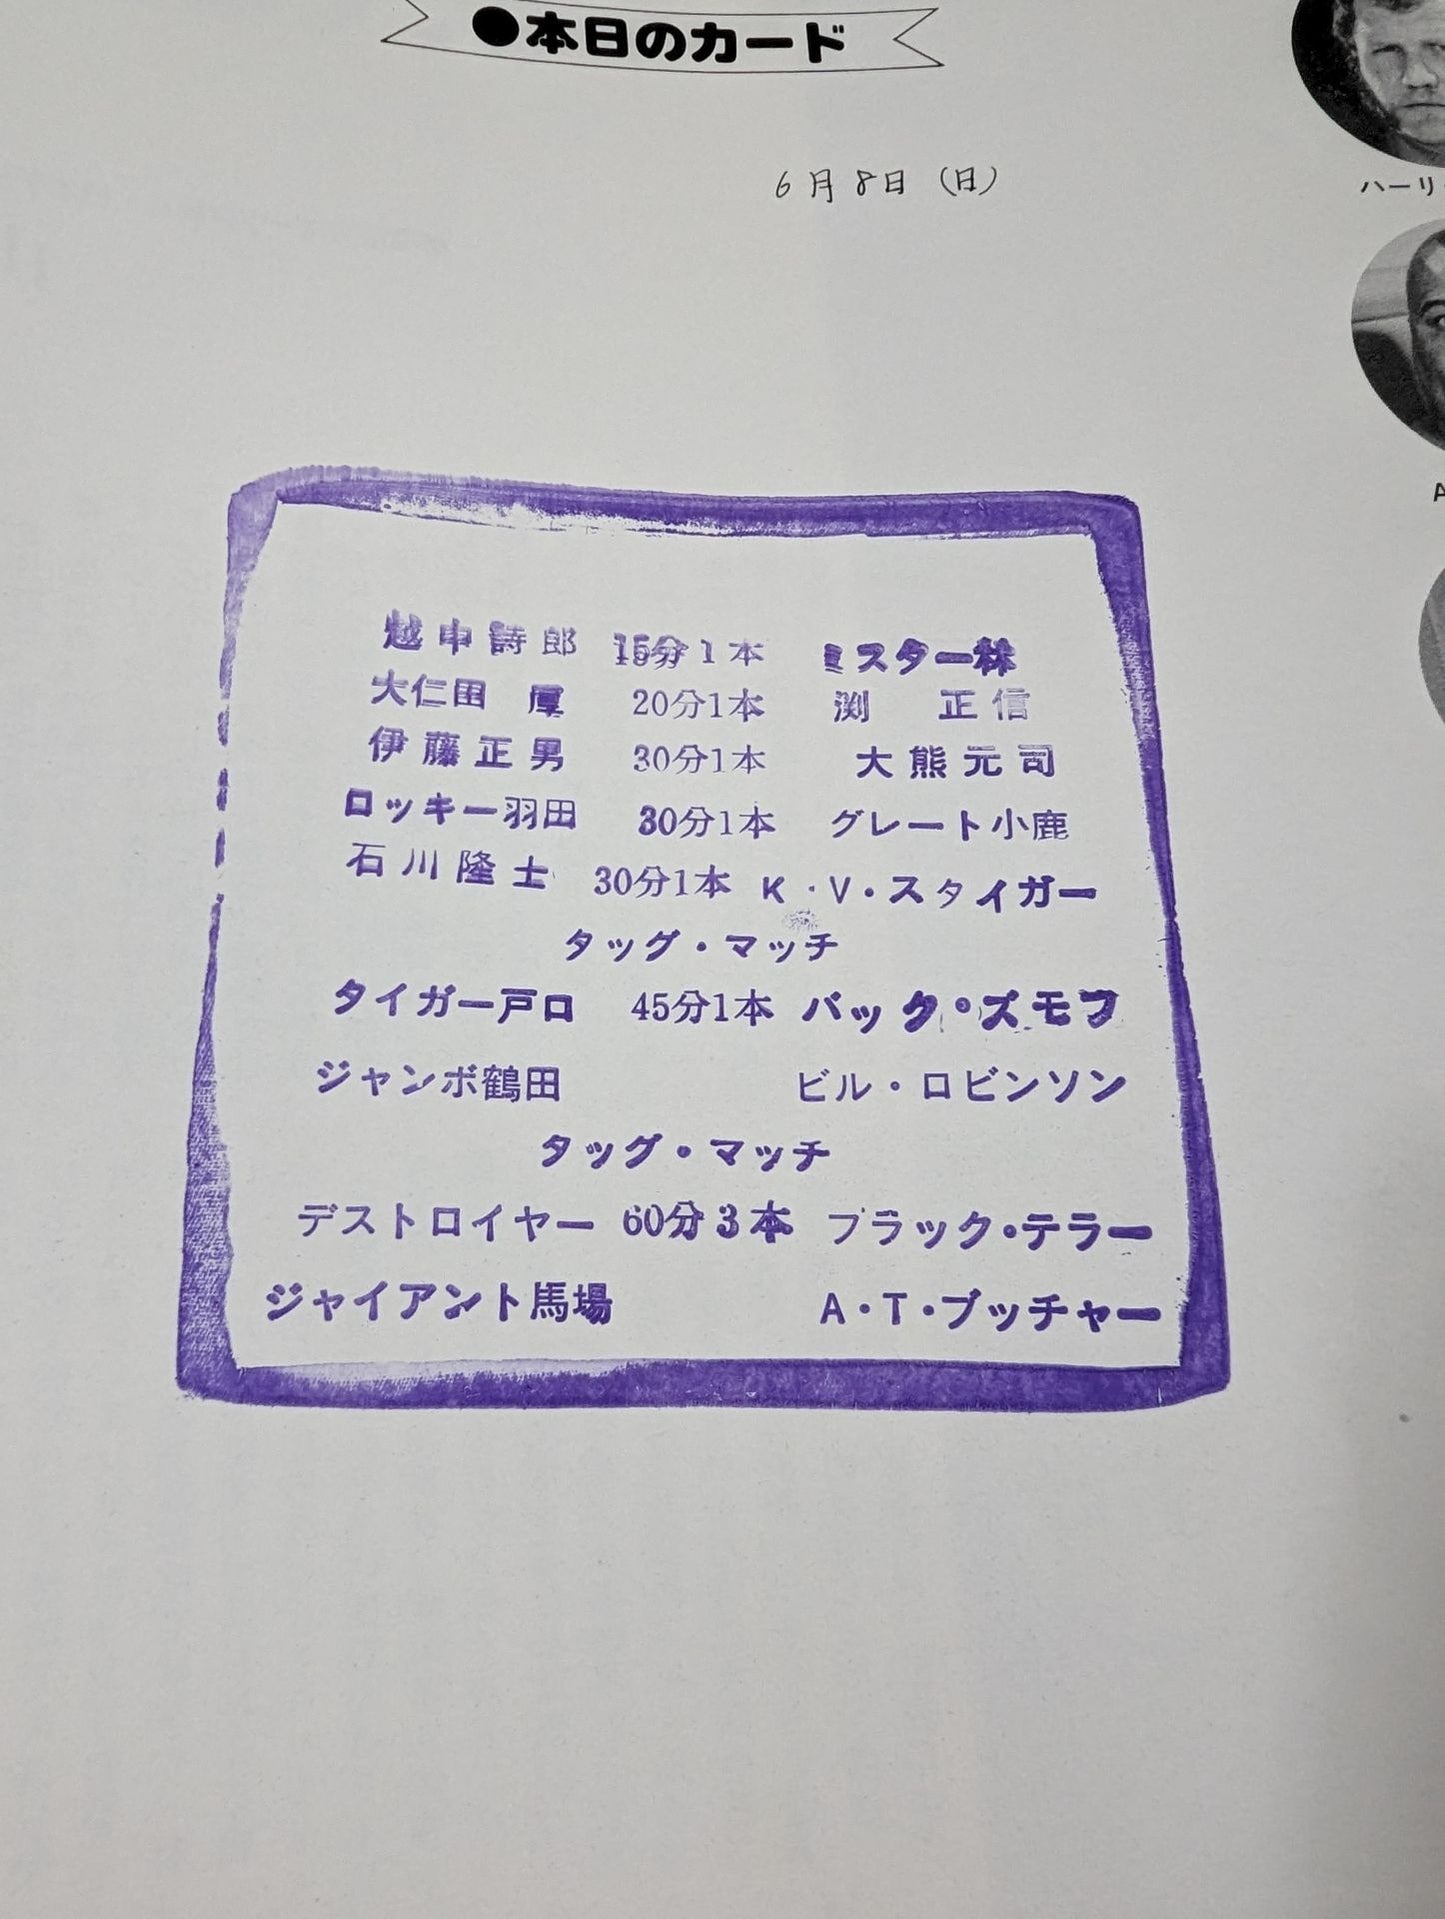 ●本日のカード
6月8日（日）
ハーリ
A
越中詩郎 15分1本 ミスター林
大仁田 厚 20分1本 渕 正信
伊藤正男 30分1本 大熊元司
ロッキー羽田 30分1本 グレート小鹿
石川隆士 30分1本 K・V・スタイガー
タッグ・マッチ
タイガー戸口 45分1本 バック・ズモフ
ジャンボ鶴田 ビル・ロビンソン
タッグ・マッチ
デストロイヤー 60分3本 ブラック・テラー
ジャイアント馬場 A・T・ブッチャー